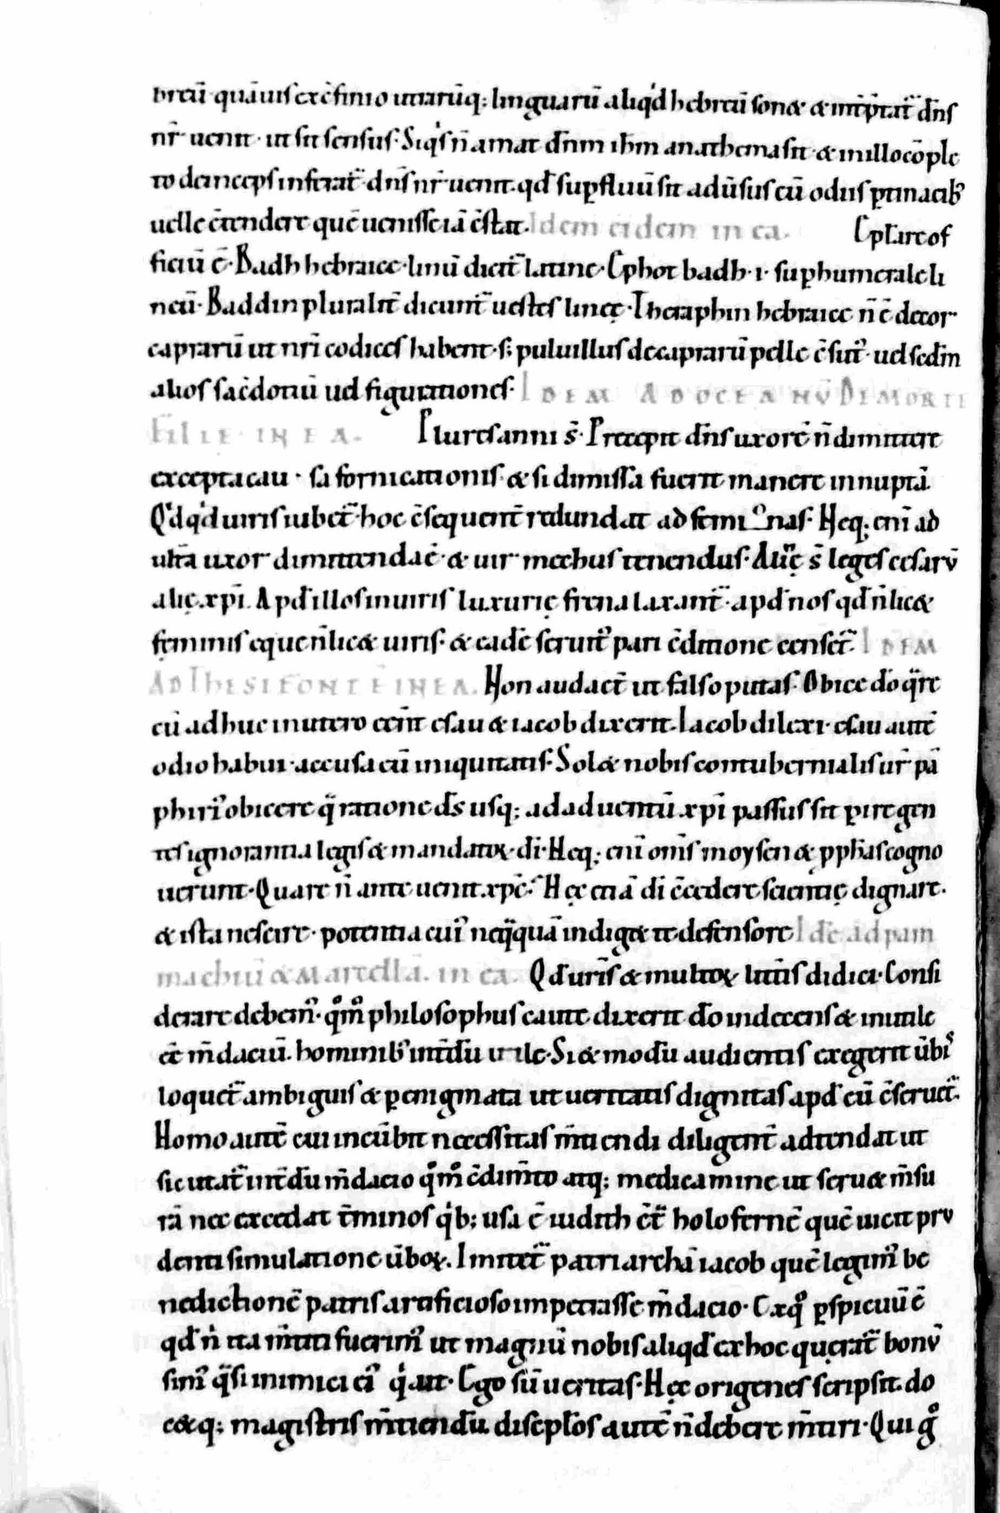 breū· quāuis ex c̄finio utrarūq; linguarū aliqd hebreū sonæ & int̄pr̄tat̄ dn̄s
nr̄ uenit· ut sit sensus· Siq̇s n̄ amat dn̄m ih̄m anathema sit· & in illo cōple
to deinceps inferat̄ dn̄s nr̄ uenit. qd̄ supfluū sit adūsus eū odiis ꝑtinacib;
uelle c̄tendere quē uenisse iā c̄stat. Idem eidem in ea. Eplare of
ficiū ē· Badh hebraice· linū dicit̄ latine· Ephot badh· i· suphumerale li
neū· Baddin pluralit̄ dicunt̄ uestes lineę· Theraphin hebraice n̄ ē de cor
caprarū ut nr̄i codices habent· s; puluillus de caprarū pelle c̄sut; uel sedm̄
alios sac̄dotiū uel figurationes· IDEM AD OCEANŪ DE MORTE
FILIE· IN EA. Plures anni s̄· Precepit dn̄s uxorē n̄ dimittere
excepta cau·sa fornicationis· & si dimissa fuerit manere innuptā.
Qd̓qd uiris iubet̄· hoc c̄sequent̄ redundat ad feminas· Neq; eni ad
ult̄a uxor dimittenda ē· & uir mechus tenendus· Alię s̄ leges cesarū
alię xp̄i. Apd̓ illos in uiris luxurię frena laxant̄· apd̓ nos qd̄ n̄ licæ
feminis eque n̄ licæ uiris· & eadē seruit; pari c̄ditione censet̄. IDEM
AD THESIFONTĒ IN EA. Non audact̄ ut falso putas· Obice do q̄re
cū adhuc in utero eent̄ esau & iacob dixerit. Iacob dilexi· esau autē
odio habui· accusa eū iniquitatis· Solæ nobis contubernalis ur̄ pā
phiri; obicere q̄ ratione ds̄ usq; ad aduentū xp̄i passus sit ꝑire gen
tes ignorantia legis & mandatoꝝ· di· Neq; eni om̄s moysen & ꝓph̄as cogno
uerunt· Quare n̄ ante uenit xp̄c. Hęc etiā di c̄cedere scientię dignare.
& ista nescire· potentia cui; neq̄quā indigæ te defensore Idē ad pam
machiū & Marcellā. in ea. Qd̓ uris & multoꝝ litt̄is didici· Consi
derare debem; qm̄ philosophus caute dixerit do indecens & inutile
eē m̄daciū. hominib; int̄dū utile· Si & modū audientis exegerit ūbi;
loquet̄ ambiguis & ꝑ enigmata ut ueritatis dignitas apd̓ eū c̄seruet̄.
Homo autē cui incūbit necessitas m̄tiendi diligent̄ adtendat ut
sic utat̄ int̄dū m̄dacio qm̄ c̄dim̄to atq; medicamine ut seruæ m̄su
rā nec excedat t̄minos q̇b; usa ē iudith c̄t̄ holofernē quē uicit pru
denti simulatione ūboꝝ. Imitet̄ patriarchā iacob quē legim; be
nedictionē patris artificioso impetrasse m̄dacio· Exq̊ ꝑspicuū ē
qd̄ n̄ ita m̄titi fuerim; ut magnū nobis aliqd̓ ex hoc querat̄ bonū
sim; q̄si inimici ei; q̇ ait· Ego sū ueritas· Hęc origenes scripsit. do
c&q; magistris m̄tiendū. discp̄los autē n̄ debere m̄tiri· Qui g̊